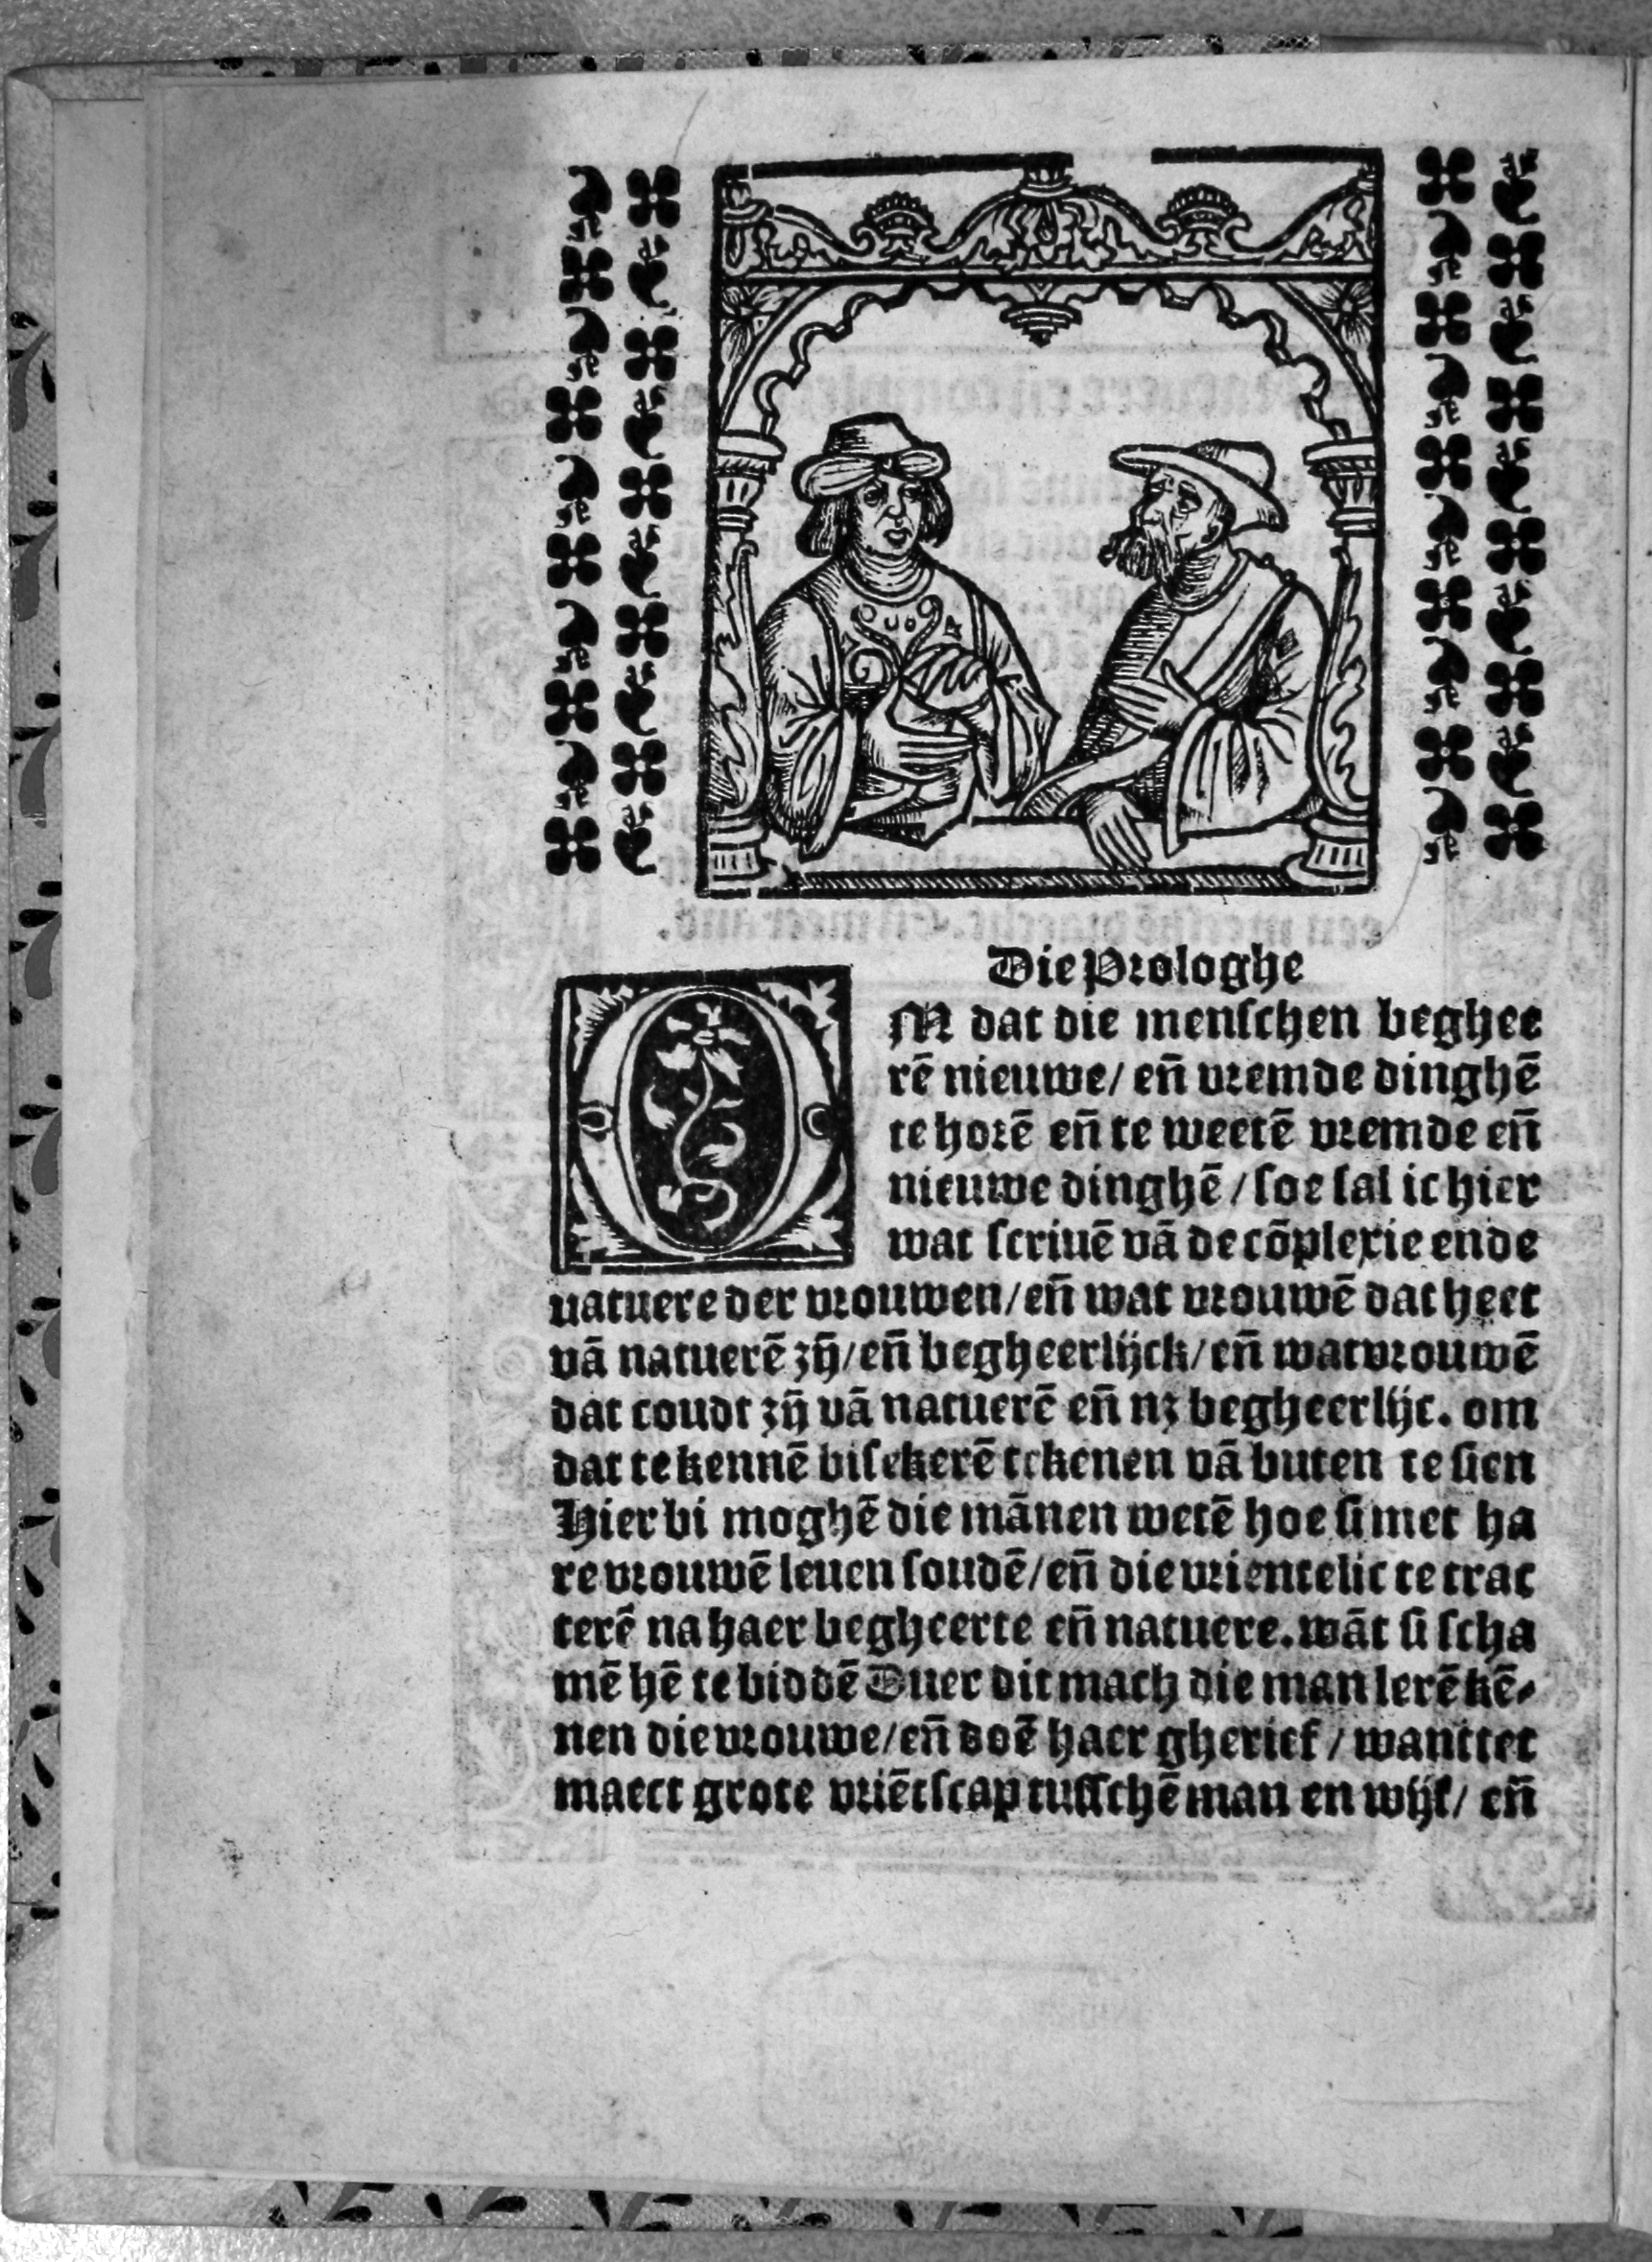 Die Prologhe
OM dat die menschen beghee
rē nieuwe/ en̄ vremde dinghē
te horē en̄ te weetē vremde en̄
nieuwe dinghē / soe sal ic hier
wat scriuē vā de cōplexie ende
uatuere der vrouwen/ en̄ wat vrouwē dat heet
vā natuerē zȳ/ en̄ begheerlijck/ en̄ wat vrouwē
dat coudt zȳ vā natuerē en̄ nz begheerlijc. om
dat te kennē bi sekerē tekenen vā buten te sien
Hier bi moghē die mānen wetē hoe si met ha
re vrouwē leuen soudē/ en̄ die vrientelic te trac
terē na haer begheerte en̄ natuere. wāt si scha
mē hē te biddē Duer dit mach die man lerē kē-
nen die vrouwe/ en̄ doē haer gherief / wanttet
maect grote vriētscap tusschē man en wijf/ en̄